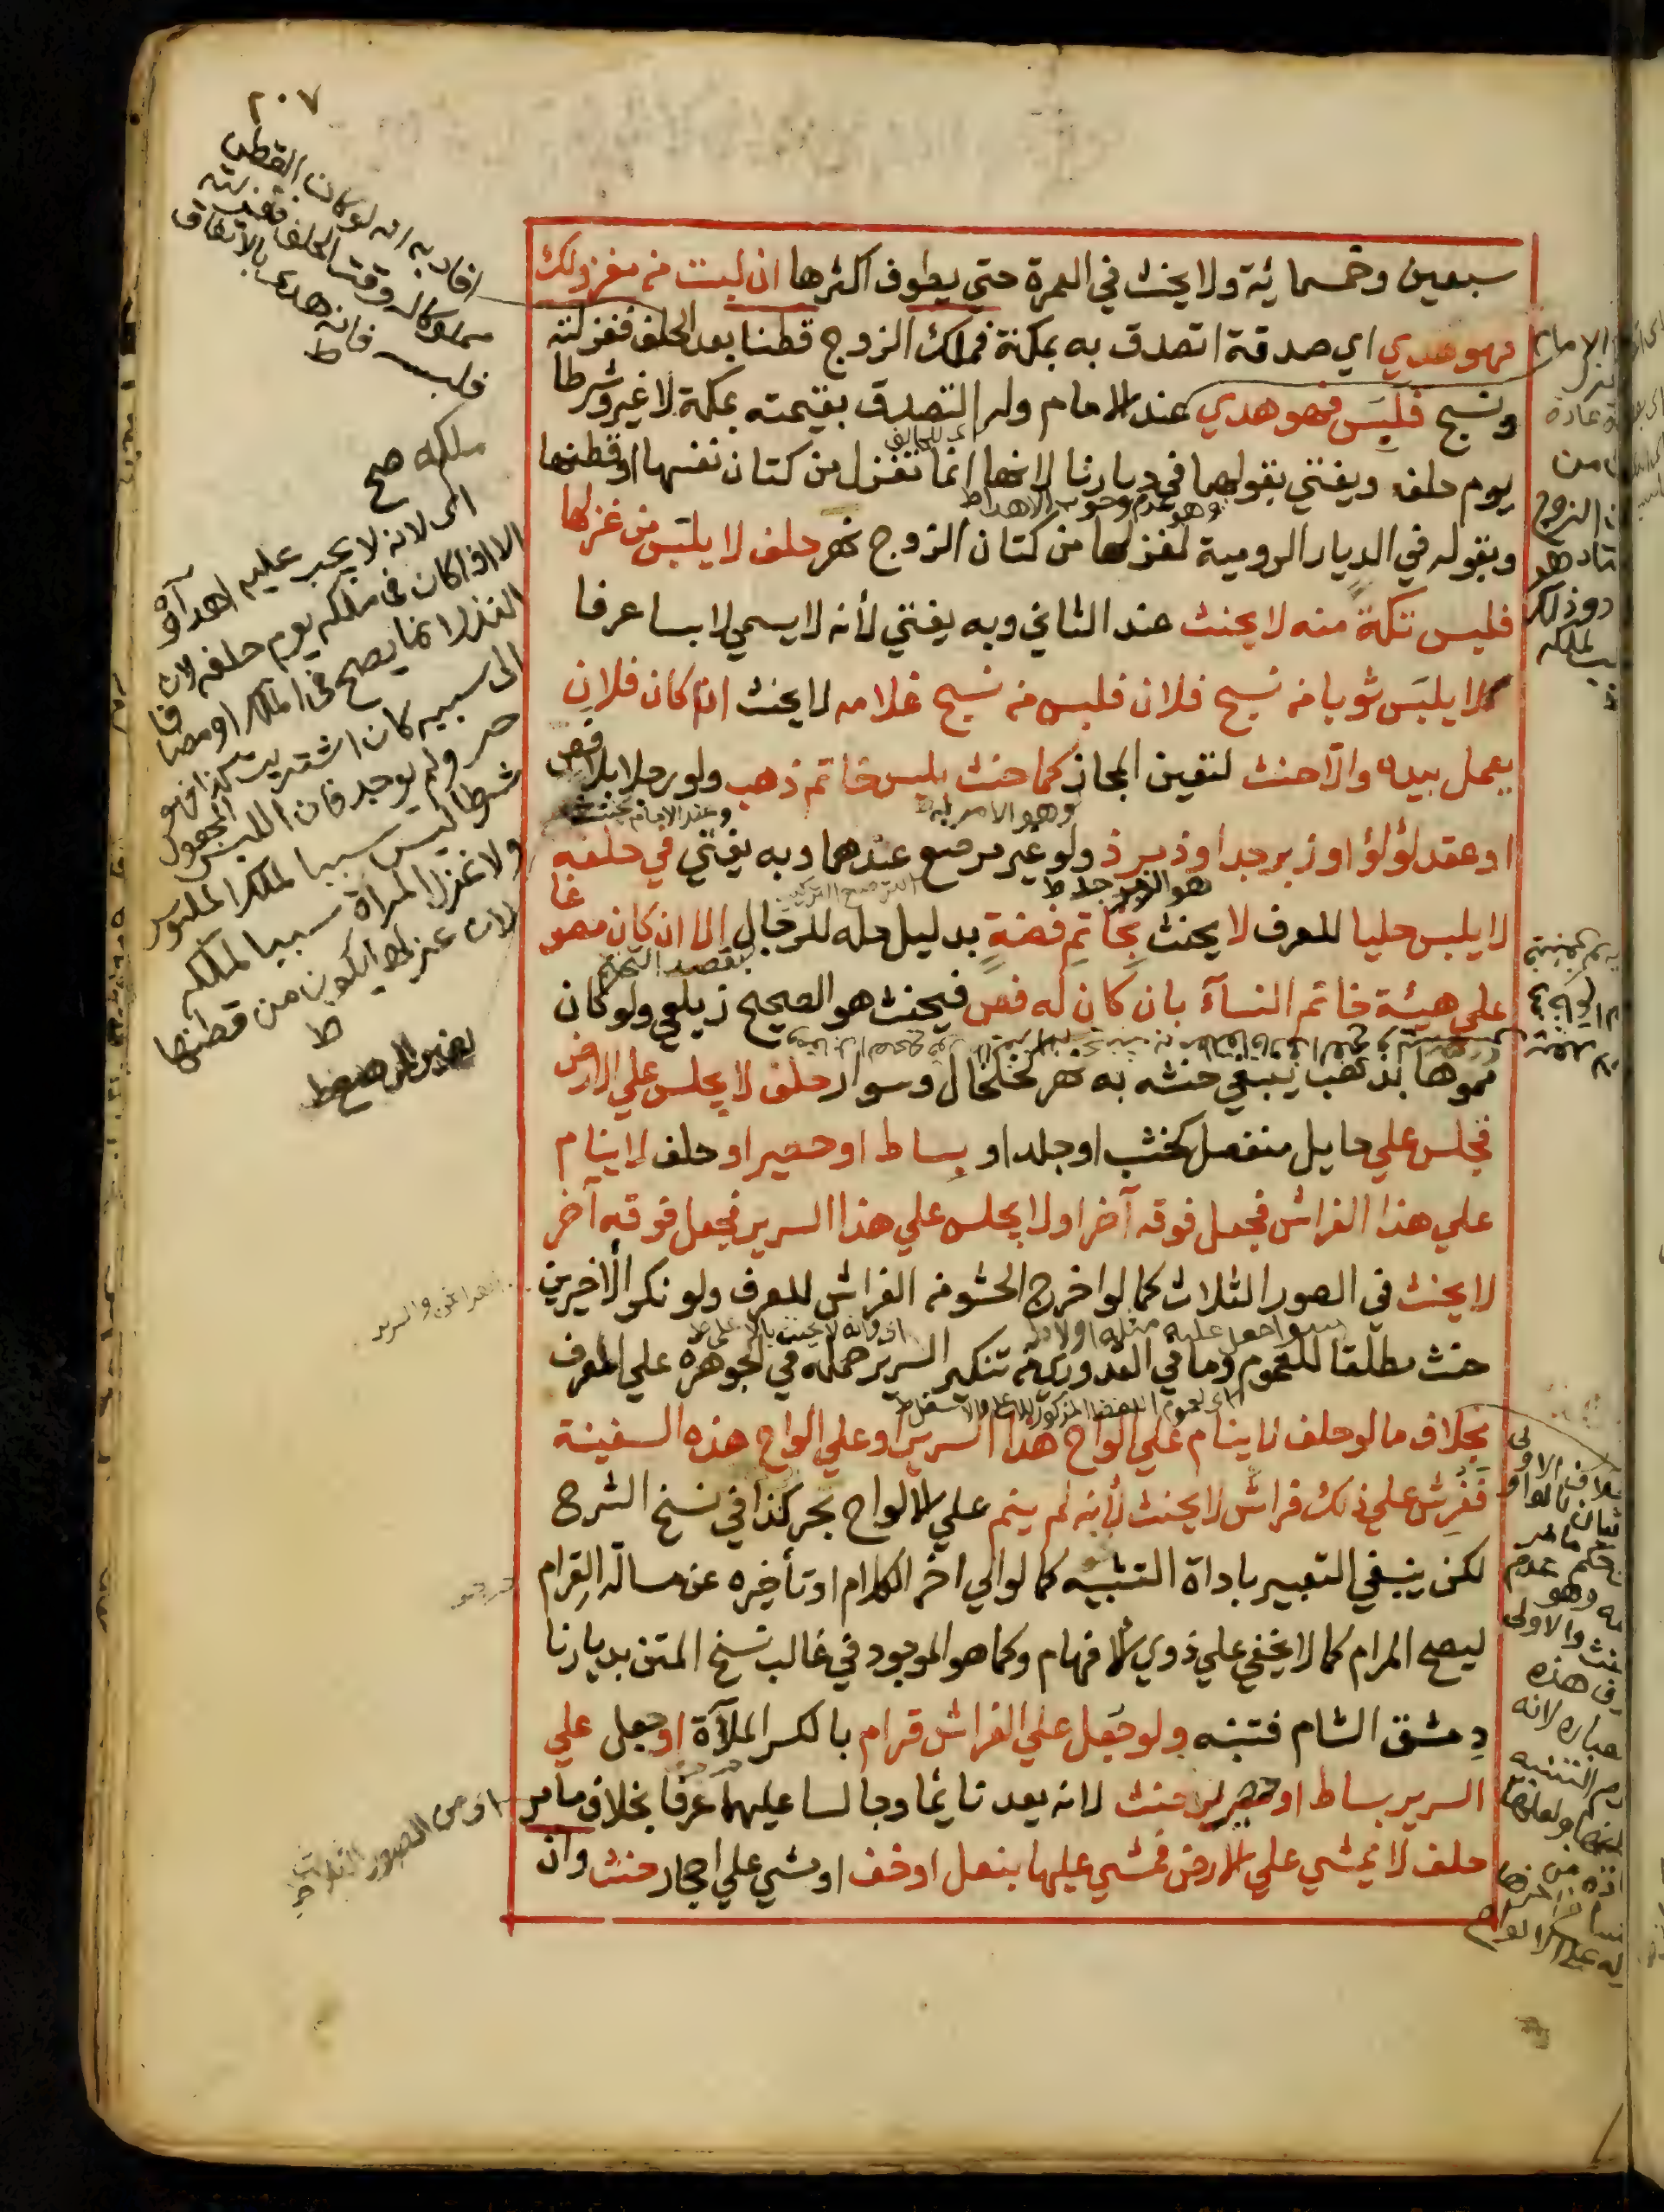 ٢٠٧
سبعين وخمسمائة ولا يحنث في العمرة حتى يطوف اكثرها ان لبست من مغزولك
فهو هدي اي صدقة اتصدق به بمكة فملك الزوج قطنا بعد الحلف فغزلته
ونسج فلبس فهو هدي عند الامام وله التصدق بقيمته بمكة لا غير وشرطا
يوم حلف ويفتي بقولهما في ديارنا لانها انما تغزل من كتان نفسها او قطنها
وبقوله في الديار الرومية لغزلها من كتان الزوج نهر حلف لا يلبس من غزلها
فلبس تكة منه لا يحنث عند الثاني وبه يفتي لأنه لا يسمي لابسا عرفا
كلا يلبس ثوبا من نسج فلان فلبس من نسج غلامه لا يحنث اذا كان فلان
يعمل بيده والا حنث لتعين المجاز كما حنث بلبس خاتم ذهب ولو رجلا بلا فص
او عقد لؤلؤ او زبرجد او زمرذ ولو غير مرصع عندهما وبه يفتي في حلفه
لا يلبس حليا للعرف لا يحنث بخاتم فضة بدليل حله للرجال الا ان كان مصوغا
علي هيئة خاتم النسآء بان كان له فص فيحنث هو الصحيح زيلعي ولو كان
مموها بذهب ينبغي حنثه به نهر كخلخال وسوار حلف لا يجلس علي الارض
فجلس علي حايل منفصل كخشب او جلد او بساط او حصير او حلف لا ينام
علي هذا الفراش فجعل فوقه آخر او لا يجلس علي هذا السرير فجعل فوقه آخر
لا يحنث في الصور الثلاث كما لو اخرج الحشو من الفراش للعرف ولو نكر الأخيرين
حنث مطلقا للعموم وما في القدوري من تنكير السرير حمله في الجوهرة علي المعرف
بخلاف ما لو حلف لا ينام علي الواح هذا السرير او علي الواح هذه السفينة
ففرش علي ذلك فراش لا يحنث لأنه لم ينم علي الالواح بحر كذا في نسخ الشرح
لكن ينبغي التعبير باداة التشبيه كما لو الي اخر الكلام او تأخيره عن مسالة القرام
ليصح المرام كما لا يخفي علي ذوي الافهام وكما هو الموجود في غالب نسخ المتن بديارنا
دمشق الشام فتنبه ولو جعل علي الفراش قرام بالكسر الملآة او جعل علي
السرير بساط او حصير حنث لانه يعد نائما وجالسا عليهما عرفا بخلاف ما مر
حلف لا يمشي علي الارض فمشي عليها بنعل او خف او مشي علي احجار حنث وان
افاد به انه لو كان القطن
مملوكا له وقت الحلف فغزلته
فلبس فانه هدي بالاتفاق
ط
ملكه صح
اى لانه لا يجب عليه اهداؤه
الا اذا كان فى ملكه يوم حلفه لان
النذر انما يصح فى الملك او مضافا
الى سببه كان اشتريت كذا فهو
حر ولم يوجد فان اللبس المجعول
شرطا ليس سببا لملك الملبوس
ولا غزل المراة سببا لملكه
لان غزلها يكون من قطنها
ط
اى للحالف
وهو عدم وجوب الاهداء ط
هو الزبرجد ط
سواء جعل عليه مثله او لا ط
اى فانه لا يحنث بالاعلى ط
اى من الصور الثلاث ط